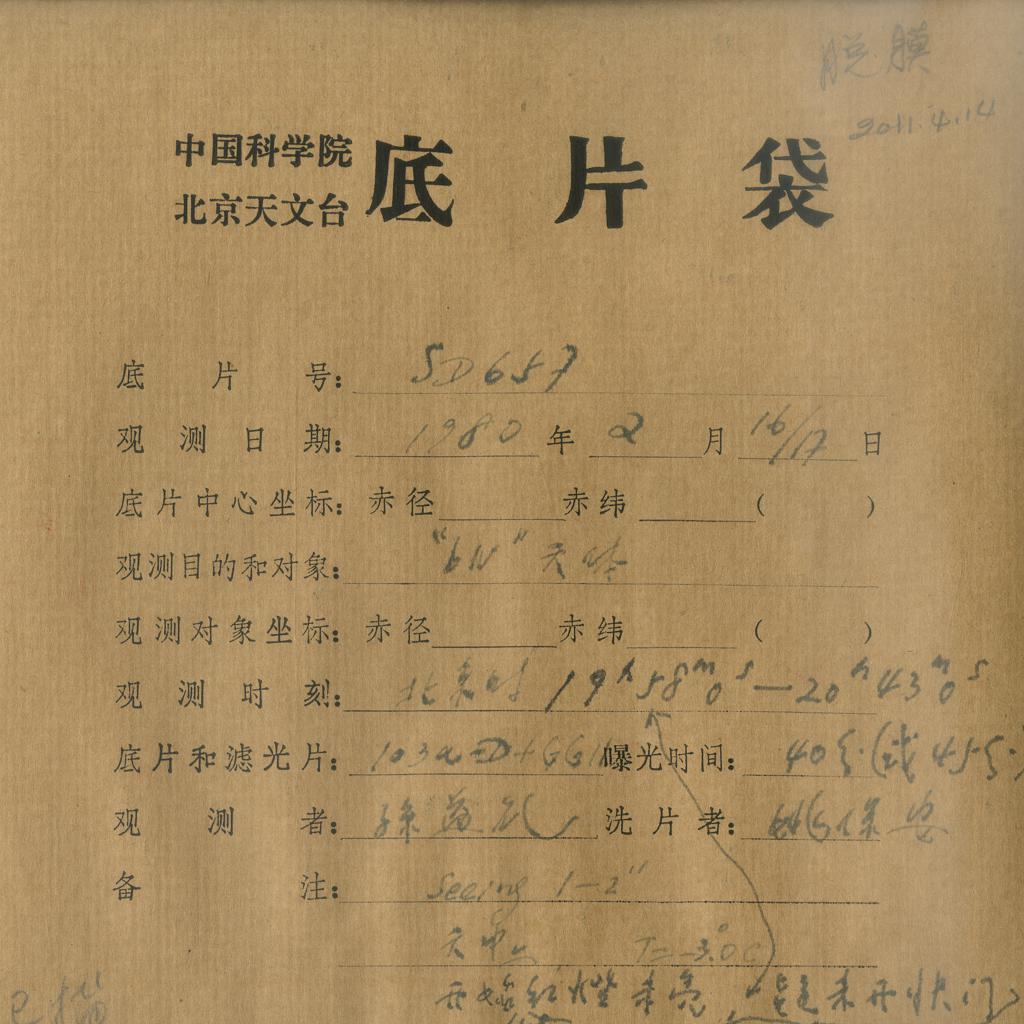 脱膜
2011.4.14
中国科学院
北京天文台
底片袋
底片号: SD657
观测日期: 1980年2月16/17日
底片中心坐标: 赤径 赤纬 ( )
观测目的和对象: "bN"天体
观测对象坐标: 赤径 赤纬 ( )
观测时刻: 北京时 19h58m0s—20h43m0s
底片和滤光片: 103aD+GG11 曝光时间: 40分(或45分)
观测者: 洗片者: 姚保安
备注: Seeing 1-2"
T=-3.0C
开始红灯未亮 疑未开快门
已描